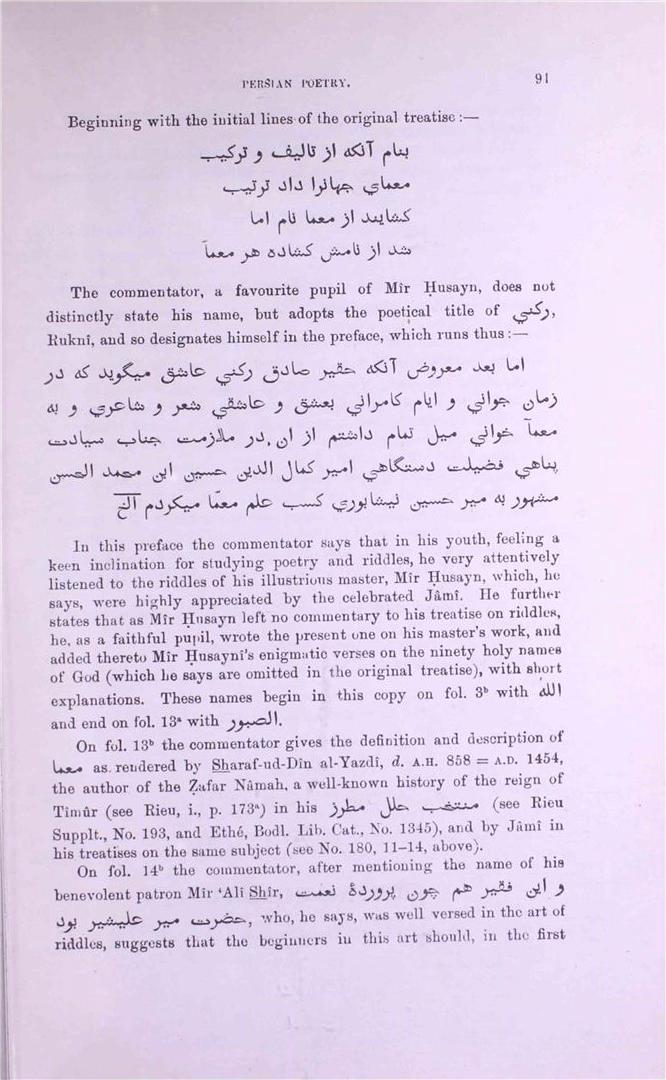 PERSIAN POETRY. 91
Beginning with the initial lines of the original treatise :—
بنام آنکه از تالیف و ترکیب
معمای جهانرا داد ترتیب
کشایند از معما نام اما
شد از نامش کشاده هر معمآ
The commentator, a favourite pupil of Mîr Ḥusayn, does not
distinctly state his name, but adopts the poetical title of رکني,
Ruknî, and so designates himself in the preface, which runs thus :—
اما بعد معروض آنکه حقیر صادق رکني عاشق میگوید که در
زمان جواني و ایام کامراني بعشق و عاشقي شعر و شاعري و به
معمآ خواني میل تمام داشتم از ان در ملازمت جناب سیادت
پناهي فضیلت دستگاهي امیر کمال الدین حسین ابن محمد الحسن
مشهور به میر حسین نیشابوري کسب علم معمّا میکردم الخ
In this preface the commentator says that in his youth, feeling a
keen inclination for studying poetry and riddles, he very attentively
listened to the riddles of his illustrious master, Mîr Ḥusayn, which, he
says, were highly appreciated by the celebrated Jâmî. He further
states that as Mîr Ḥusayn left no commentary to his treatise on riddles,
he, as a faithful pupil, wrote the present one on his master's work, and
added thereto Mîr Ḥusaynî's enigmatic verses on the ninety holy names
of God (which he says are omitted in the original treatise), with short
explanations. These names begin in this copy on fol. 3ᵇ with الله
and end on fol. 13ᵃ with الصبور.
On fol. 13ᵇ the commentator gives the definition and description of
معما as rendered by Sharaf-ud-Dîn al-Yazdî, d. A.H. 858 = A.D. 1454,
the author of the Ẓafar Nâmah, a well-known history of the reign of
Tîmûr (see Rieu, i., p. 173ᵃ) in his منتخب حلل مطرز (see Rieu
Supplt., No. 193, and Ethé, Bodl. Lib. Cat., No. 1345), and by Jâmî in
his treatises on the same subject (see No. 180, 11–14, above).
On fol. 14ᵇ the commentator, after mentioning the name of his
benevolent patron Mîr ‘Alî Shîr, و این فقیر هم چون پروردۀ نعمت
حضرت میر علیشیر بود, who, he says, was well versed in the art of
riddles, suggests that the beginners in this art should, in the first